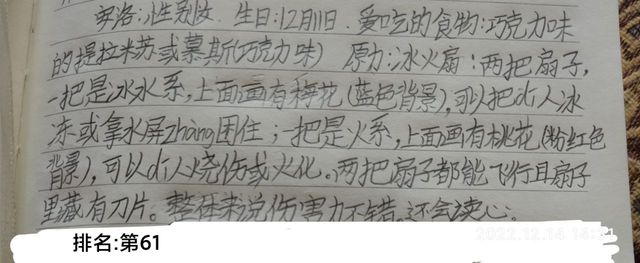 安洛:性别女.生日:12月11日.爱吃的食物:巧克力味
的提拉米苏或慕斯(巧克力味) 原力:冰火扇:两把扇子,
一把是冰水系,上面画有梅花(蓝色背景),可以把di人冰
冻或拿水屏zhàng困住;一把是火系,上面画有桃花(粉红色
背景),可以di人烧伤或火化。两把扇子都能飞行且扇子
里藏有刀片。整体来说伤害力不错。还会读心。
排名:第61
2022.12.14 14:21